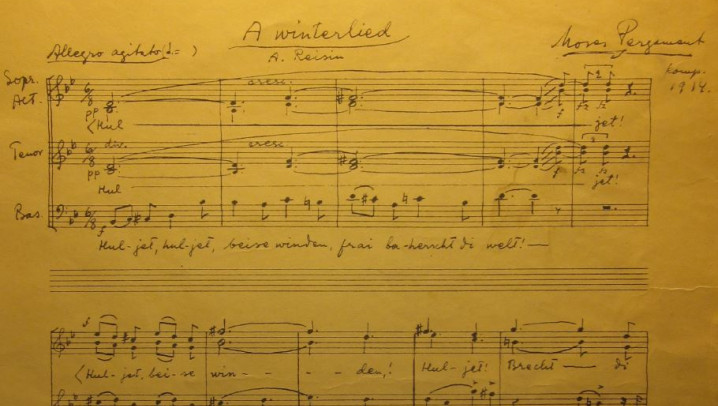 A winterlied
Allegro agitato (♩.= )
A. Reisin
Moses Pergament
komp. 1914.
Sopr. Alt.
6/8
pp
cresc.
f
2
<Hul jet!
Tenor
6/8
div.
pp
cresc.
f
3
Hul jet!
Bas
6/8
f
Hul-jet, hul-jet, beise winden, frai ba-herscht di welt! —
f
<Hul-jet, bei-se win - - - den,! Hul-jet! Brecht — di